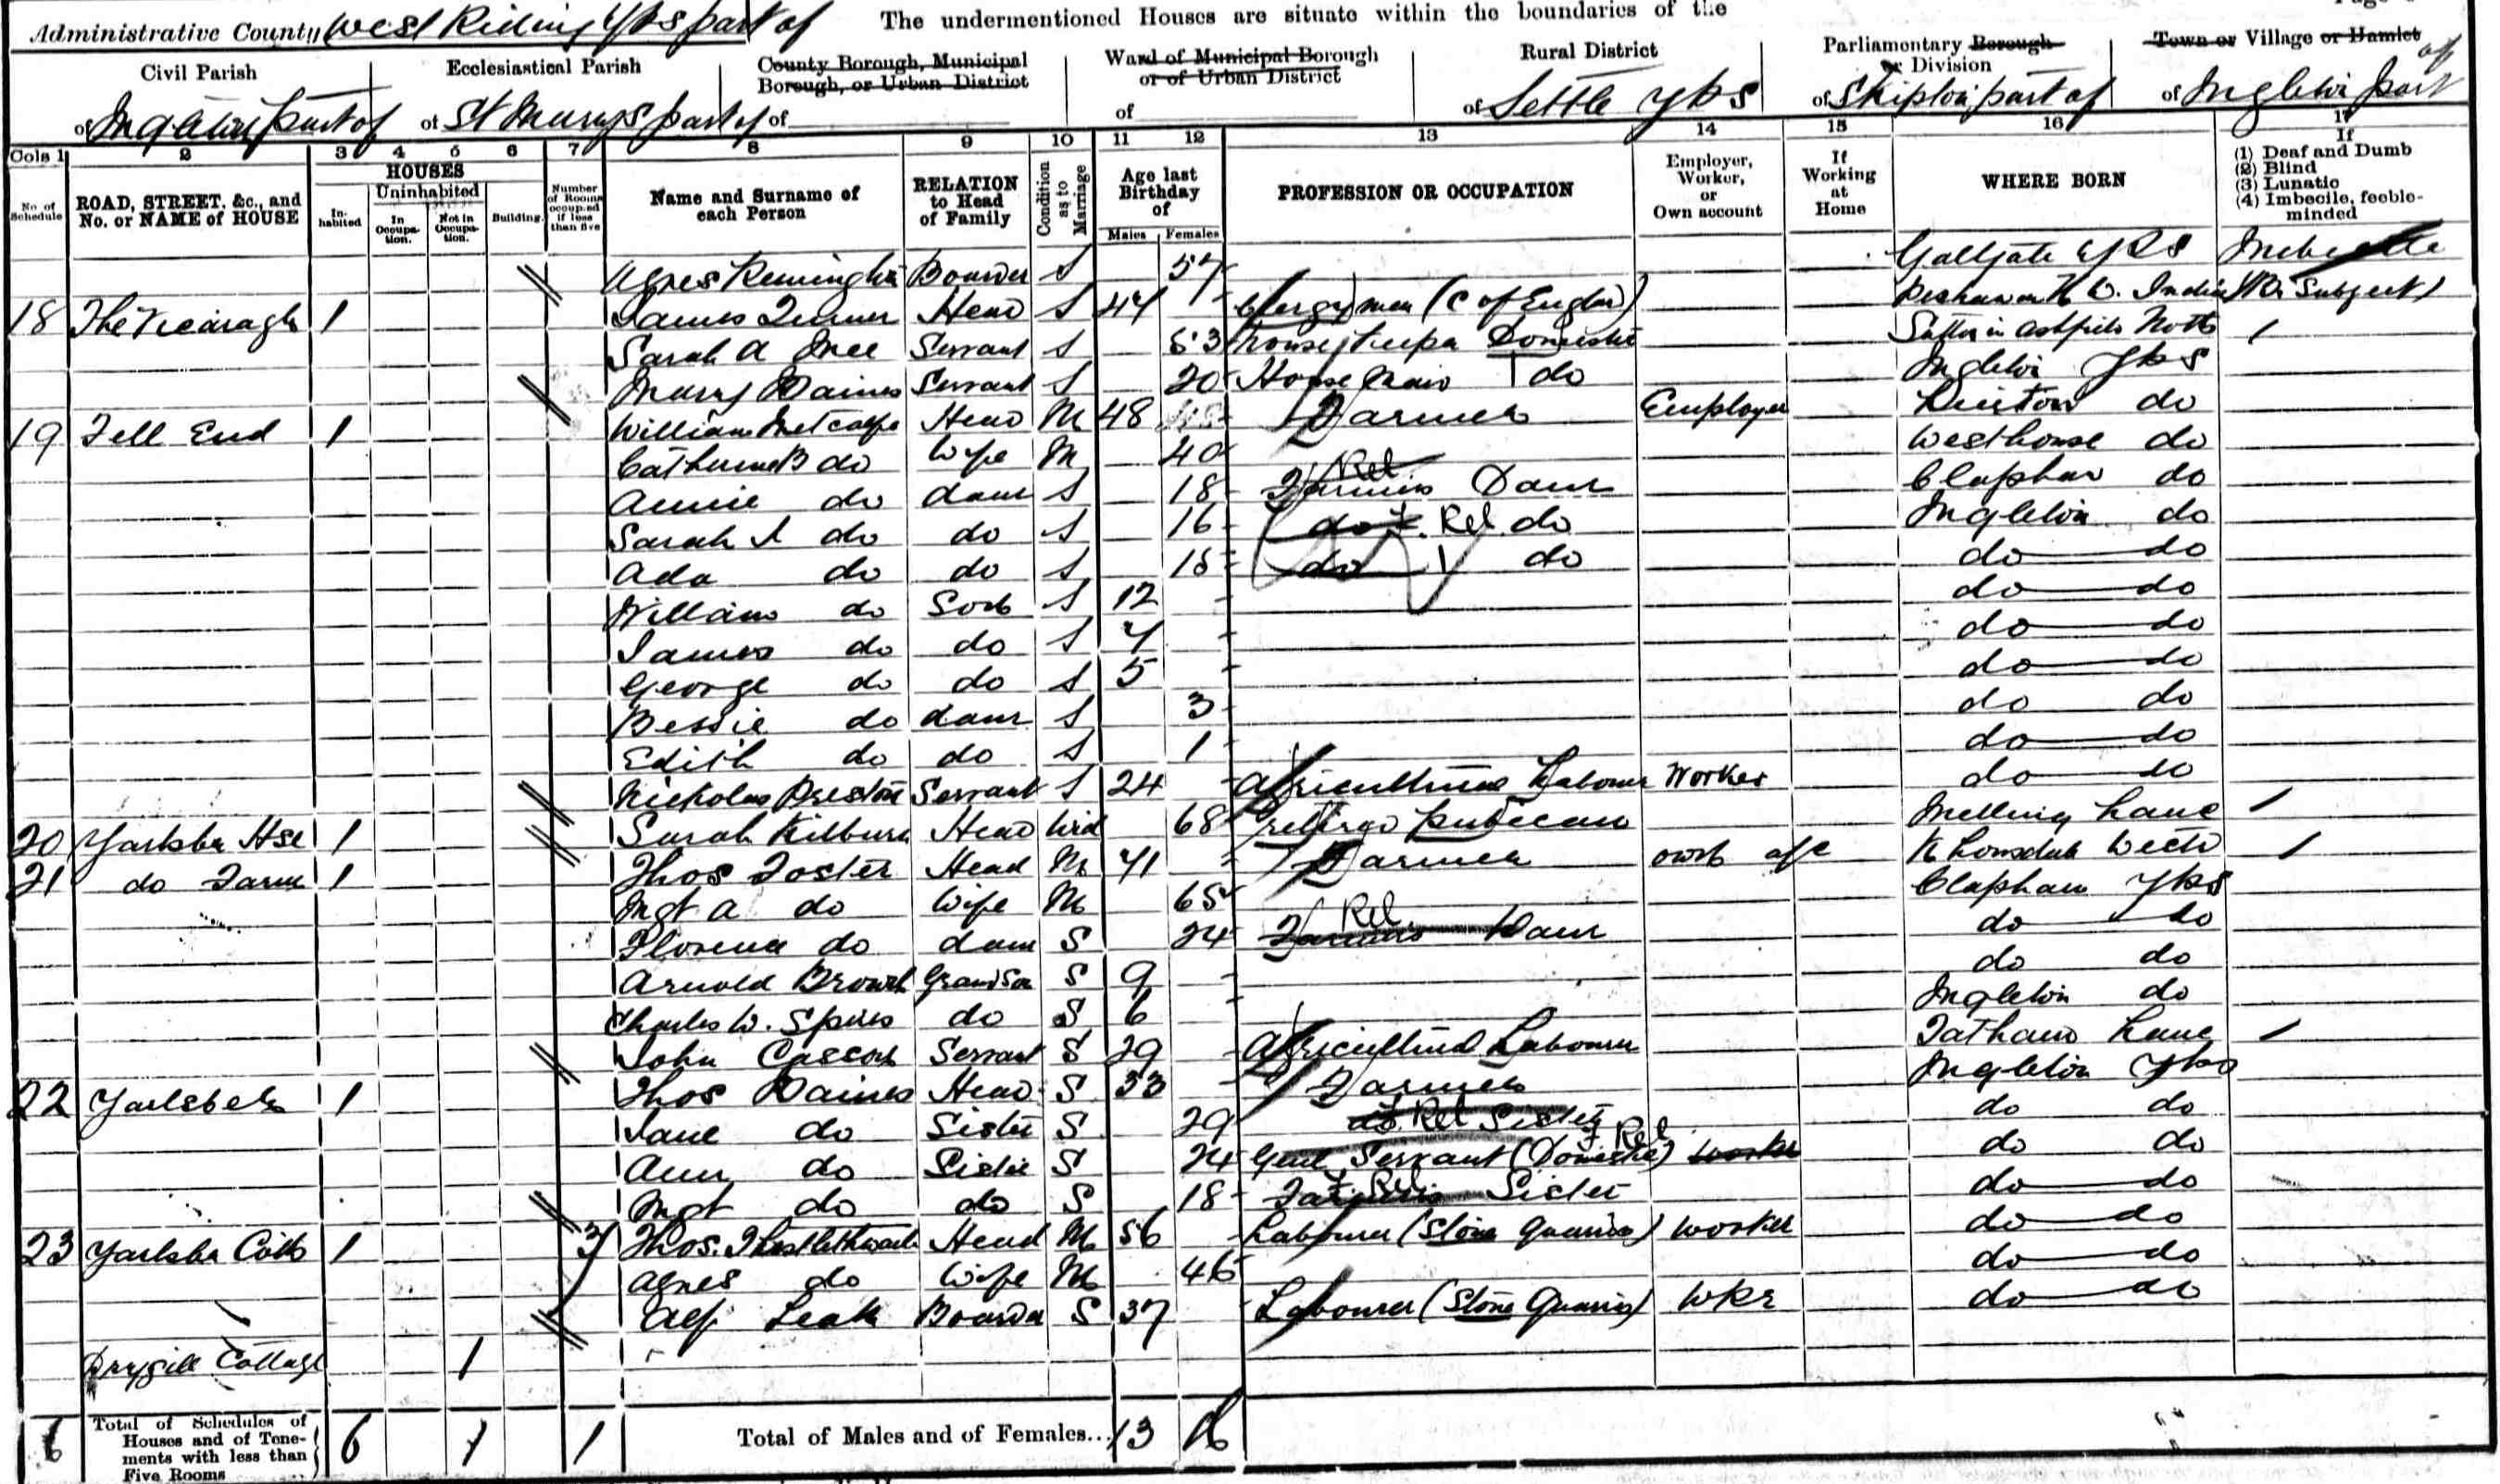 Administrative County West Riding Yks part of The undermentioned Houses are situate within the boundaries of the
Civil Parish Ecclesiastical Parish County Borough, Municipal Borough, or Urban District Ward of Municipal Borough or of Urban District Rural District Parliamentary Borough or Division Town or Village or Hamlet
of Ingleton part of of St Marys part of of of of Settle Yks of Skipton part of of Ingleton part of
Cols 1 2 3 4 5 6 7 8 9 10 11 12 13 14 15 16 17
No. of Schedule ROAD, STREET, &c., and No. or NAME of HOUSE HOUSES Inhabited Uninhabited In Occupation. Not in Occupation. Building. Number of Rooms occupied if less than five Name and Surname of each Person RELATION to Head of Family Condition as to Marriage Age last Birthday of Males Females PROFESSION OR OCCUPATION Employer, Worker, or Own account If Working at Home WHERE BORN If (1) Deaf and Dumb (2) Blind (3) Lunatic (4) Imbecile, feeble-minded
Agnes Remington Boarder S 57 Galgate Yks Imbecile
18 The Vicarage 1 James Turner Head S 47 Clergyman (C of Englan) Peshawar N W. India (Br Subject)
Sarah A Ince Servant S 53 Housekeeper Domestic Sutton in Ashfield Notts
Mary Baines Servant S 20 House Maid do Ingleton Yks
19 Fell End 1 William Metcalfe Head M 48 Farmer Employer do
Catherine B do Wife M 40 Westhouse do
Annie do daur S 18 Farmers Daur Rel Clapham do
Sarah I do do S 16 do F. Rel do Ingleton do
Ada do do S 15 do do do do
William do Son S 12 do do
James do do S 7 do do
George do do S 5 do do
Bessie do daur S 3 do do
Edith do do S 1 do do
Nicholas Preston Servant S 24 Agricultural Labourer Worker do do
20 Yarlsber Hse 1 Sarah Kilburn Head Wid 68 Retired Publican Melling Lanc
21 do Farm 1 Thos Foster Head M 71 Farmer own a/c K Lonsdale
Mgt A do Wife M 65 Clapham Yks
Florence do daur S 24 Farmers Daur Rel do do
Arnold Brown Grandson S 9 do do
Charles W. Spires do S 6 Ingleton do
John Servant S 29 Agricultural Labourer Tatham Lanc
22 Yarlsber 1 Thos Baines Head S 33 Farmer Ingleton Yks
Jane do Sister S 29 do F Rel Sister do do
Ann do Sister S 24 Genl Servant (Domestic) F. Rel worker do do
Mgt do do S 18 Farmers Sister F Rel do do
23 Yarlsber Cotts 1 3 Thos. Thistlethwaite Head M 56 Labourer (Stone Quarries) worker do do
Agnes do Wife M 46 do do
Alf Leak Boarder S 37 Labourer (Stone Quarries) Wkr do do
Drygill Cottage 1
6 Total of Schedules of Houses and of Tenements with less than Five Rooms 6 1 1 Total of Males and of Females... 13 16